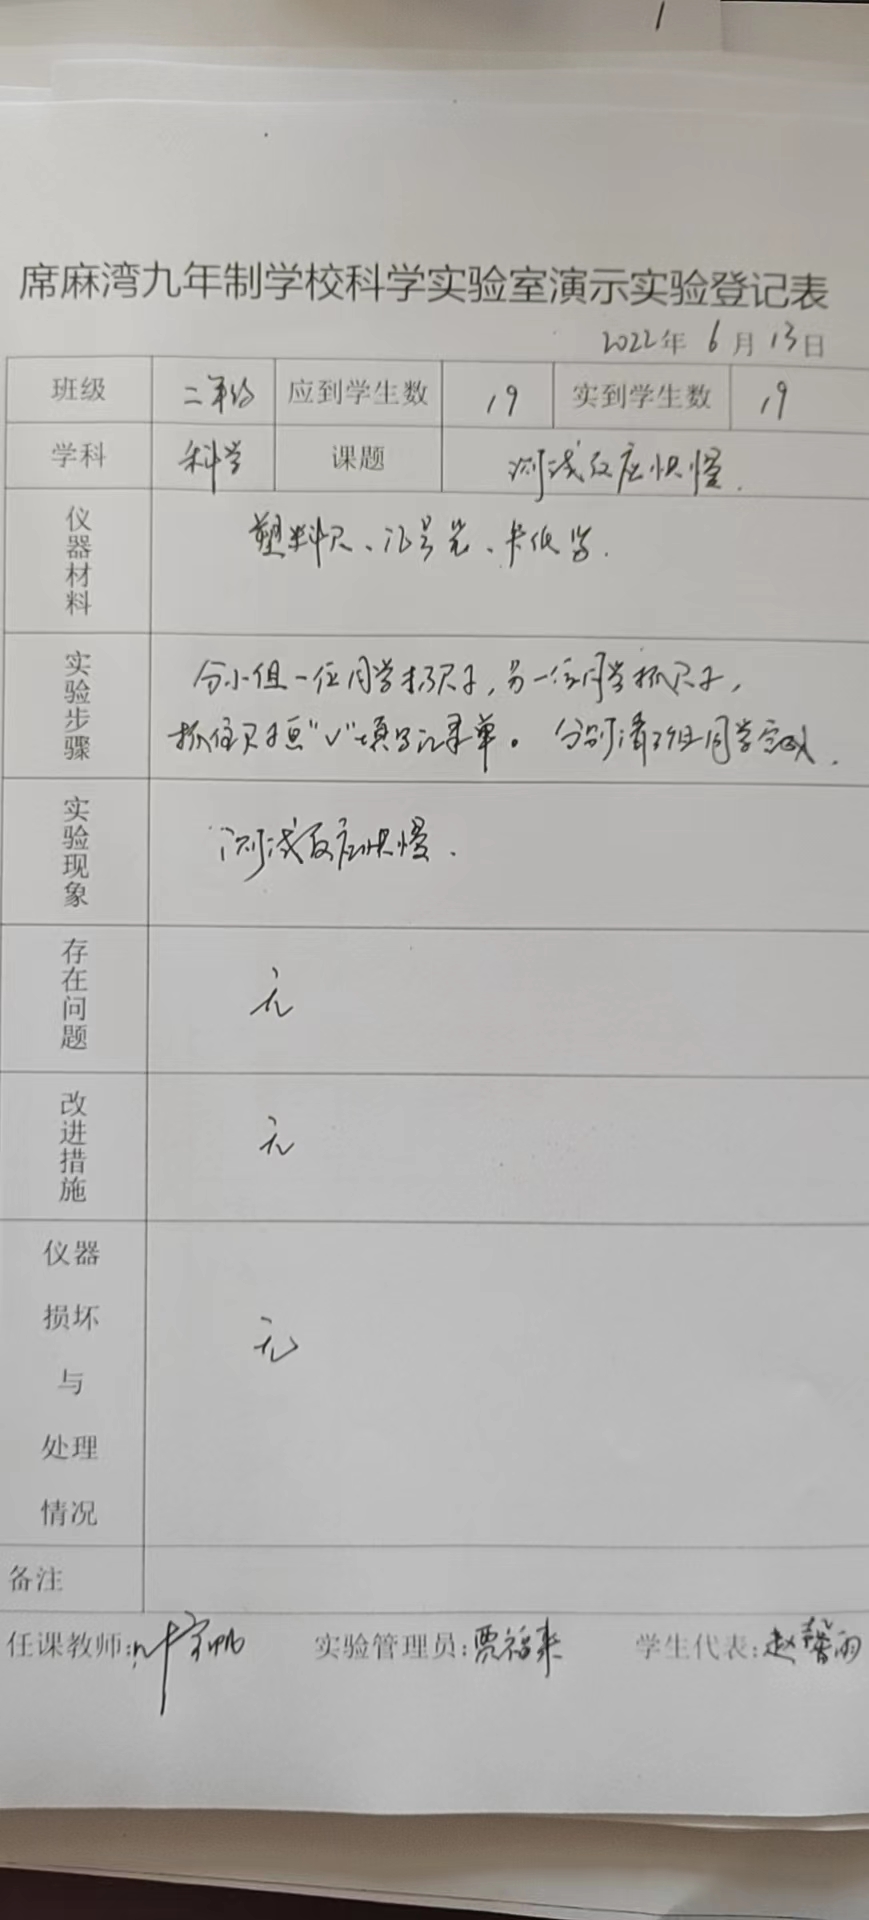 席麻湾九年制学校科学实验室演示实验登记表
2022年6月13日
班级 二年级 应到学生数 19 实到学生数 19
学科 科学 课题 测试反应快慢.
仪器材料 塑料尺、记号笔、卡纸等.
实验步骤 分小组一位同学扔尺子,另一位同学抓尺子,
抓住尺子画"√"填写记录单。分别请3组同学完成.
实验现象 测试反应快慢.
存在问题 无
改进措施 无
仪器
损坏
与
处理
情况
无
备注
任课教师: 实验管理员:贾福来 学生代表:赵馨雨